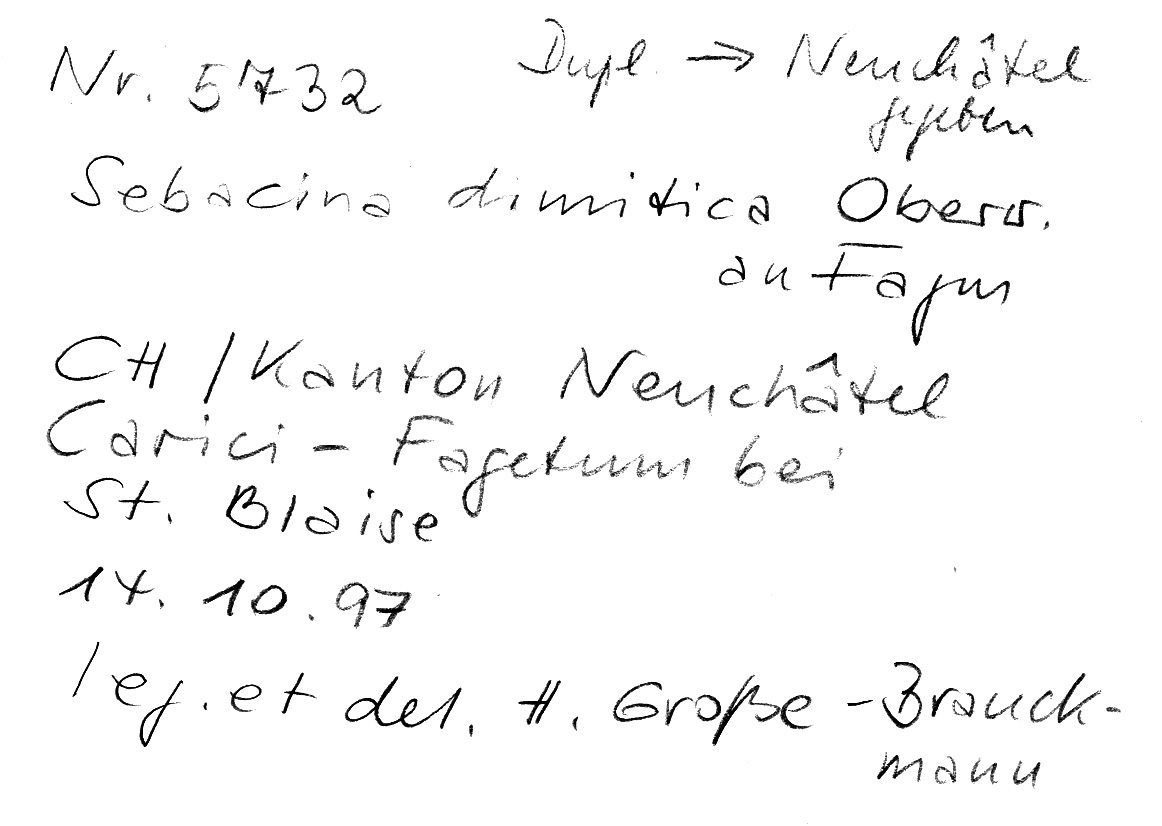 Nr. 5732
Dupl. → Neuchâtel
gegeben
Sebacina dimitica Oberw.
an Fagus
CH / Kanton Neuchâtel
Carici - Fagetum bei
St. Blaise
14. 10. 97
leg. et det. H. Große - Brauck-
mann